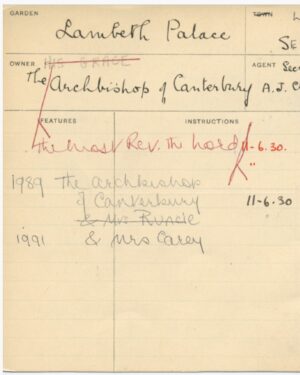 GARDEN
TOWN L
Lambeth Palace
SE
OWNER HIS GRACE
AGENT Sec
The Archbishop of Canterbury A.J.C
FEATURES
INSTRUCTIONS
The Most Rev. The Lord 11-6.30.
"
1989 The Archbishop
of Canterbury 11-6.30
& Mrs Runcie
1991 & Mrs Carey